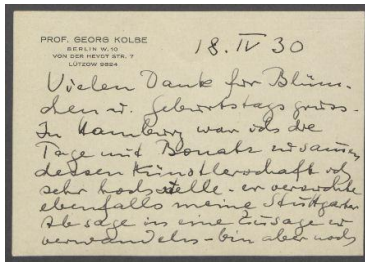 PROF. GEORG KOLBE
BERLIN W.10
VON DER HEYDT STR. 7
LÜTZOW 9824
18. IV 30
Vielen Dank for Blüm-
chen u. Geburtstagsgruss-
In Hamburg war ich die
Tage mit Bonatz zusammen,
dessen Künstlerschaft ich
sehr hoch stelle - er versuchte
ebenfalls meine Stuttgarter
Absage in eine Zusage zu
verwandeln - bin aber noch